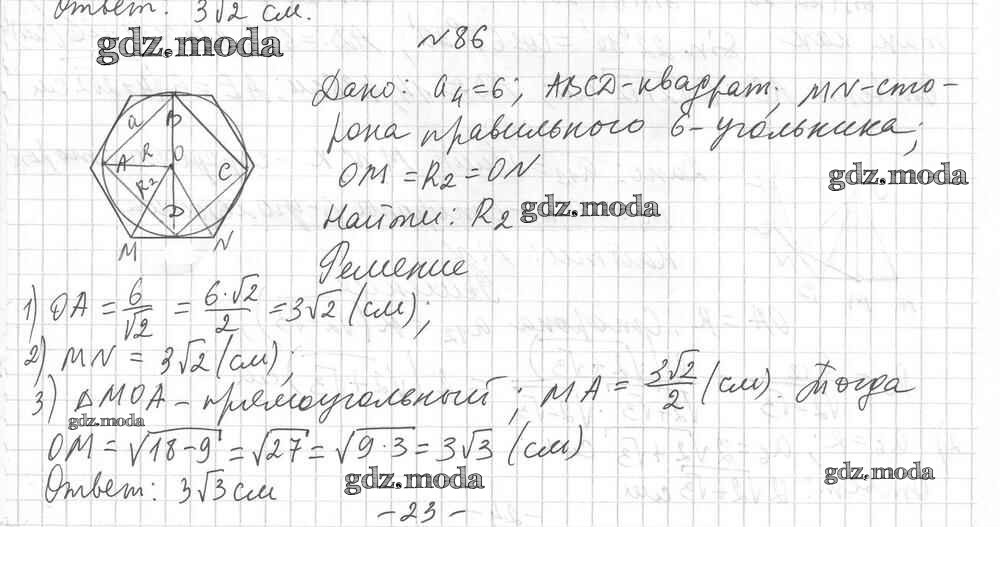 Ответ: 3√2 см.
gdz.moda
№86
Дано: a₄=6; ABCD-квадрат; MN-сто-
рона правильного 6-угольника;
OM = R₂ = ON
gdz.moda
Найти: R₂ gdz.moda
Решение
a B R O A C R₂ D M N
1) OA = 6/√2 = 6·√2/2 = 3√2 (см);
2) MN = 3√2 (см);
3) △MOA - прямоугольный; MA = 3√2/2 (см). Тогда
gdz.moda
OM = √18-9 = √27 = √9·3 = 3√3 (см)
gdz.moda
gdz.moda
Ответ: 3√3 см
-23-